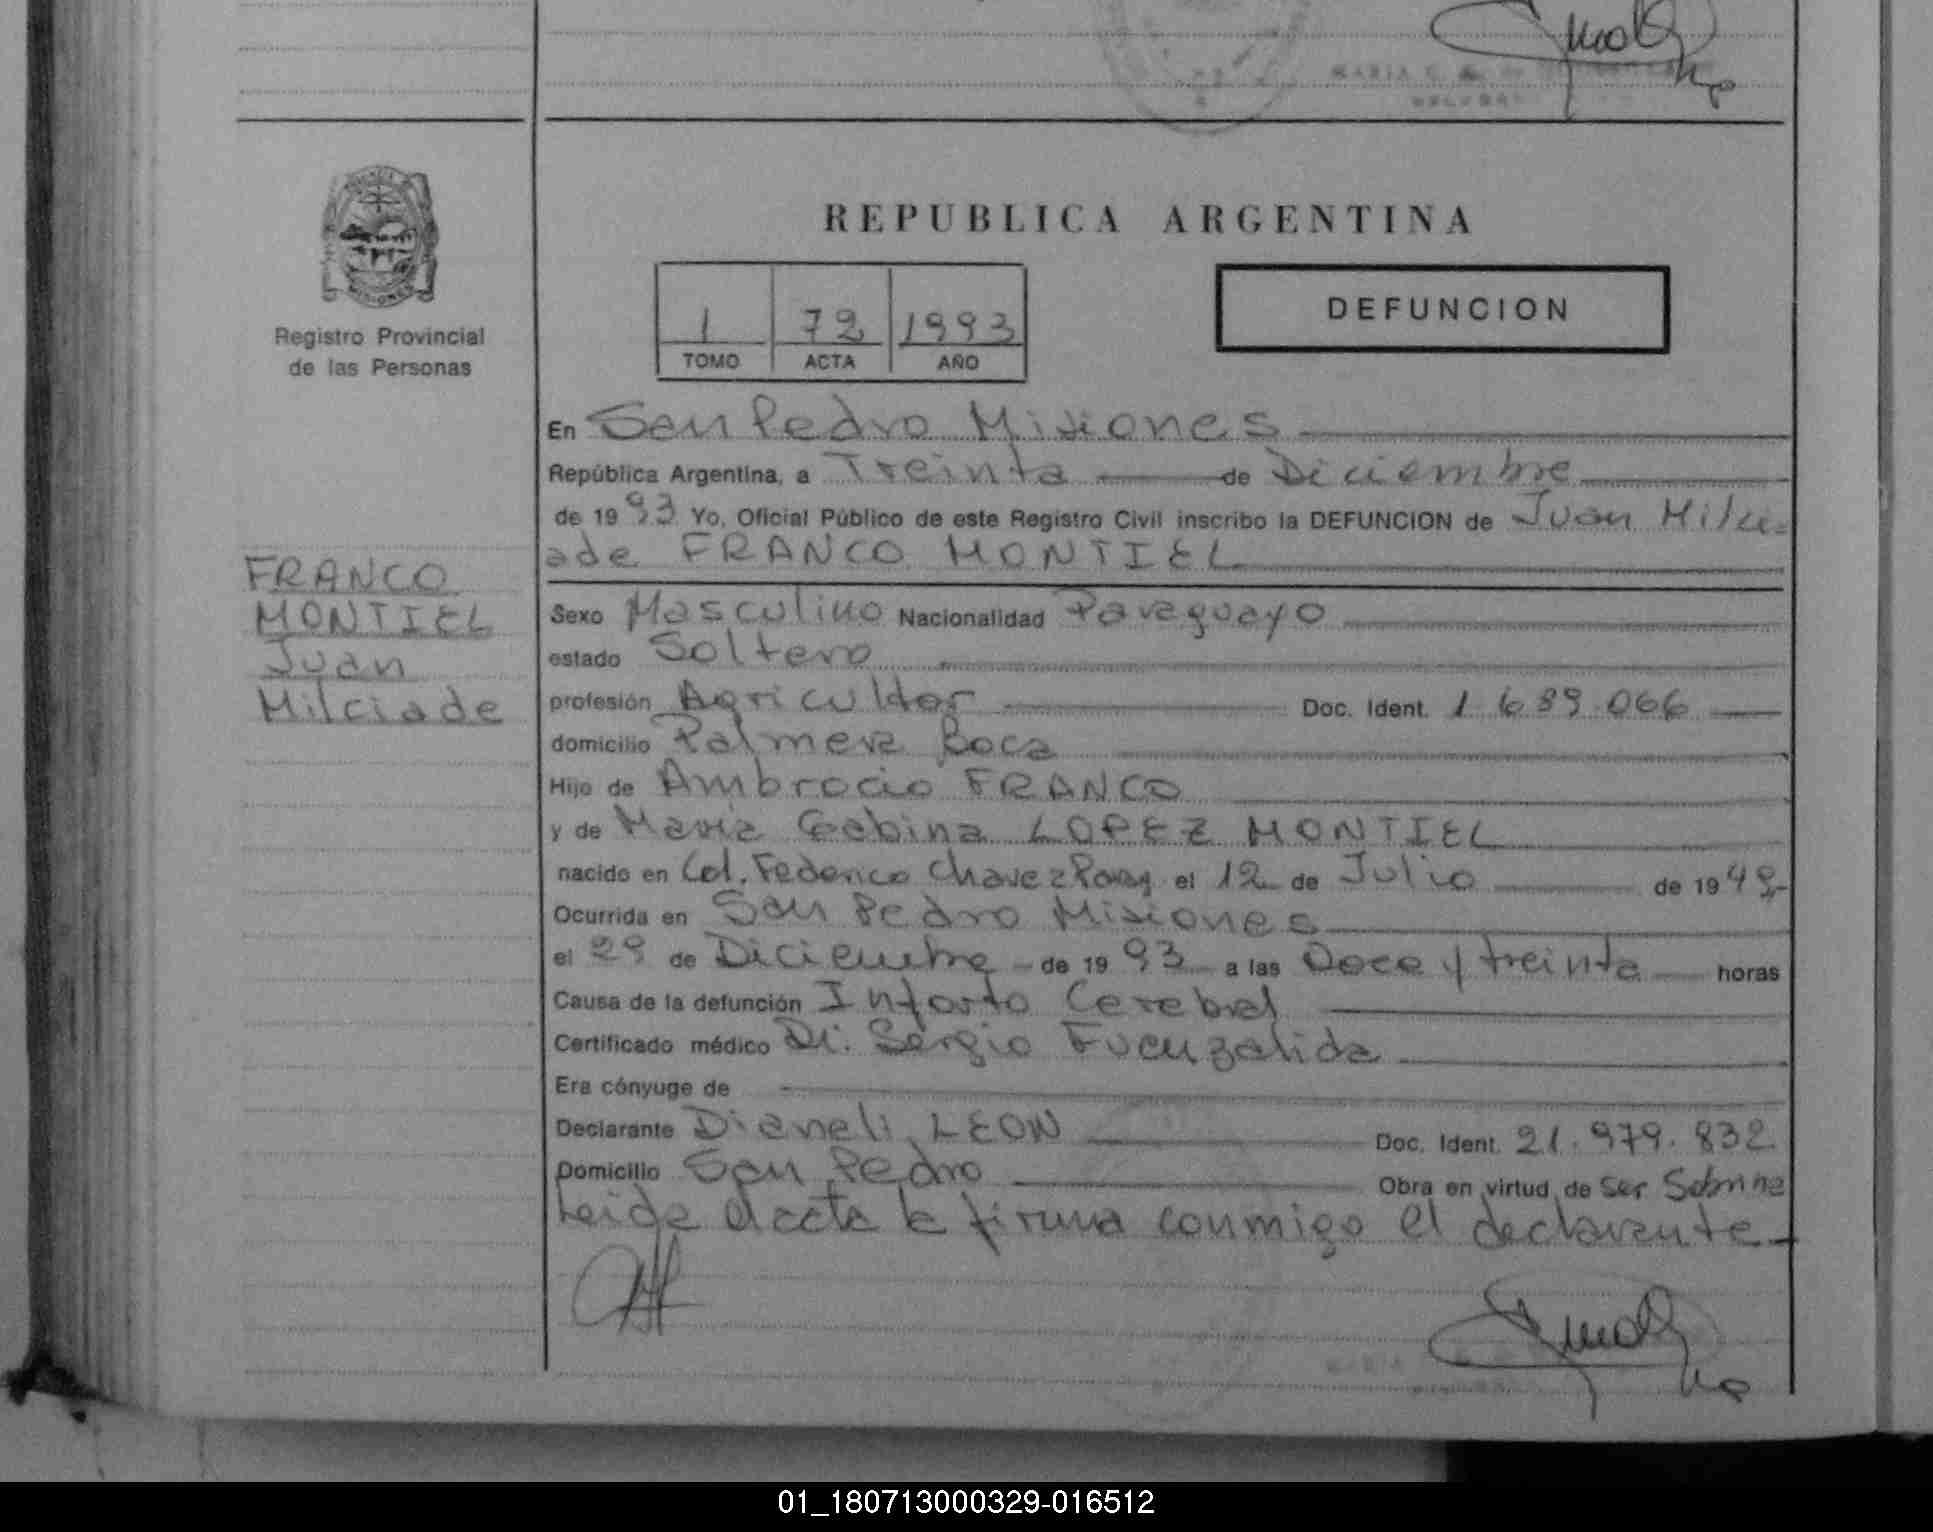 REPUBLICA ARGENTINA
MISIONES
Registro Provincial
de las Personas
1 72 1993
TOMO ACTA AÑO
DEFUNCION
En San Pedro Misiones
República Argentina, a Treinta de Diciembre
de 1993 Yo, Oficial Público de este Registro Civil inscribo la DEFUNCION de Juan Milci=
ade FRANCO MONTIEL
FRANCO
MONTIEL
Juan
Milciade
Sexo Masculino Nacionalidad Paraguayo
estado Soltero
profesión Agricultor Doc. Ident. 1.689.066
domicilio Palmera Boca
Hijo de Ambrocio FRANCO
y de Maria Gabina LOPEZ MONTIEL
nacido en Col. Federico Chavez Paray el 12 de Julio de 1949
Ocurrida en San Pedro Misiones
el 29 de Diciembre de 1993 a las Doce y treinta horas
Causa de la defunción Infarto Cerebral
Certificado médico Dr. Sergio Fuenzalida
Era cónyuge de
Declarante Dianeli LEON Doc. Ident. 21.979.832
Domicilio San Pedro Obra en virtud de ser Sobrina
Leida el acta la firma conmigo el declarante
01_180713000329-016512